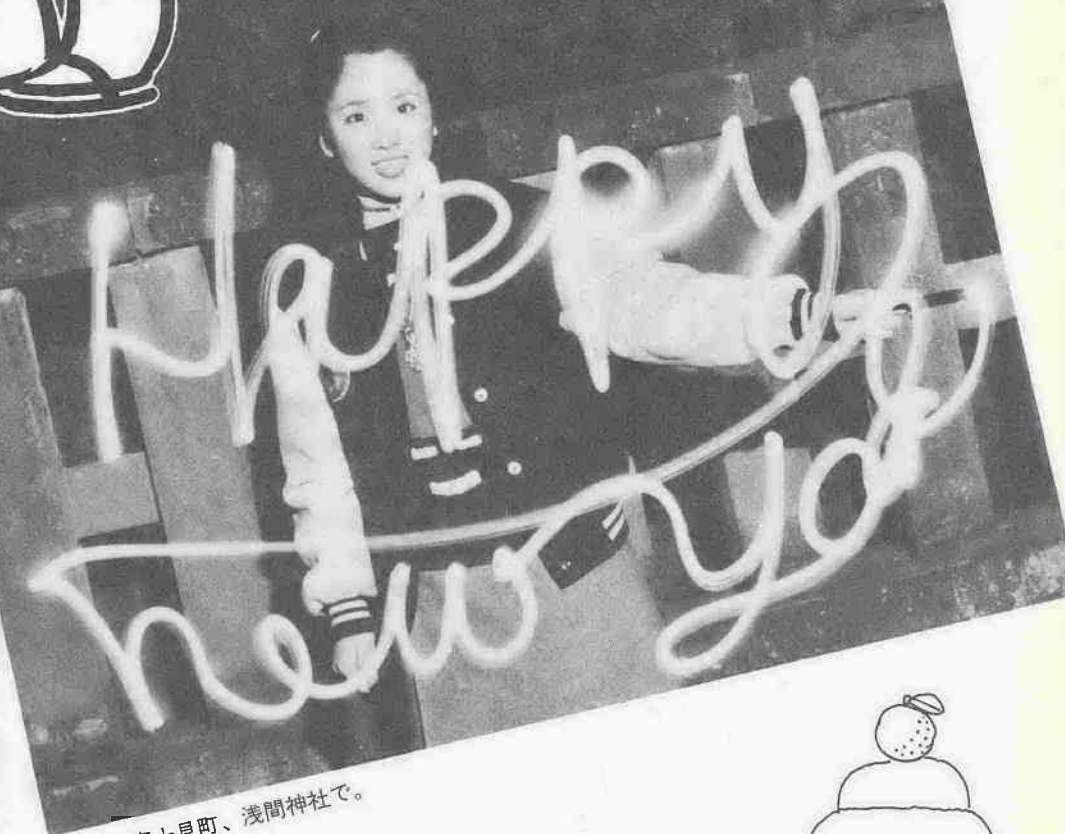 Happy
new
見町、浅間神社で。